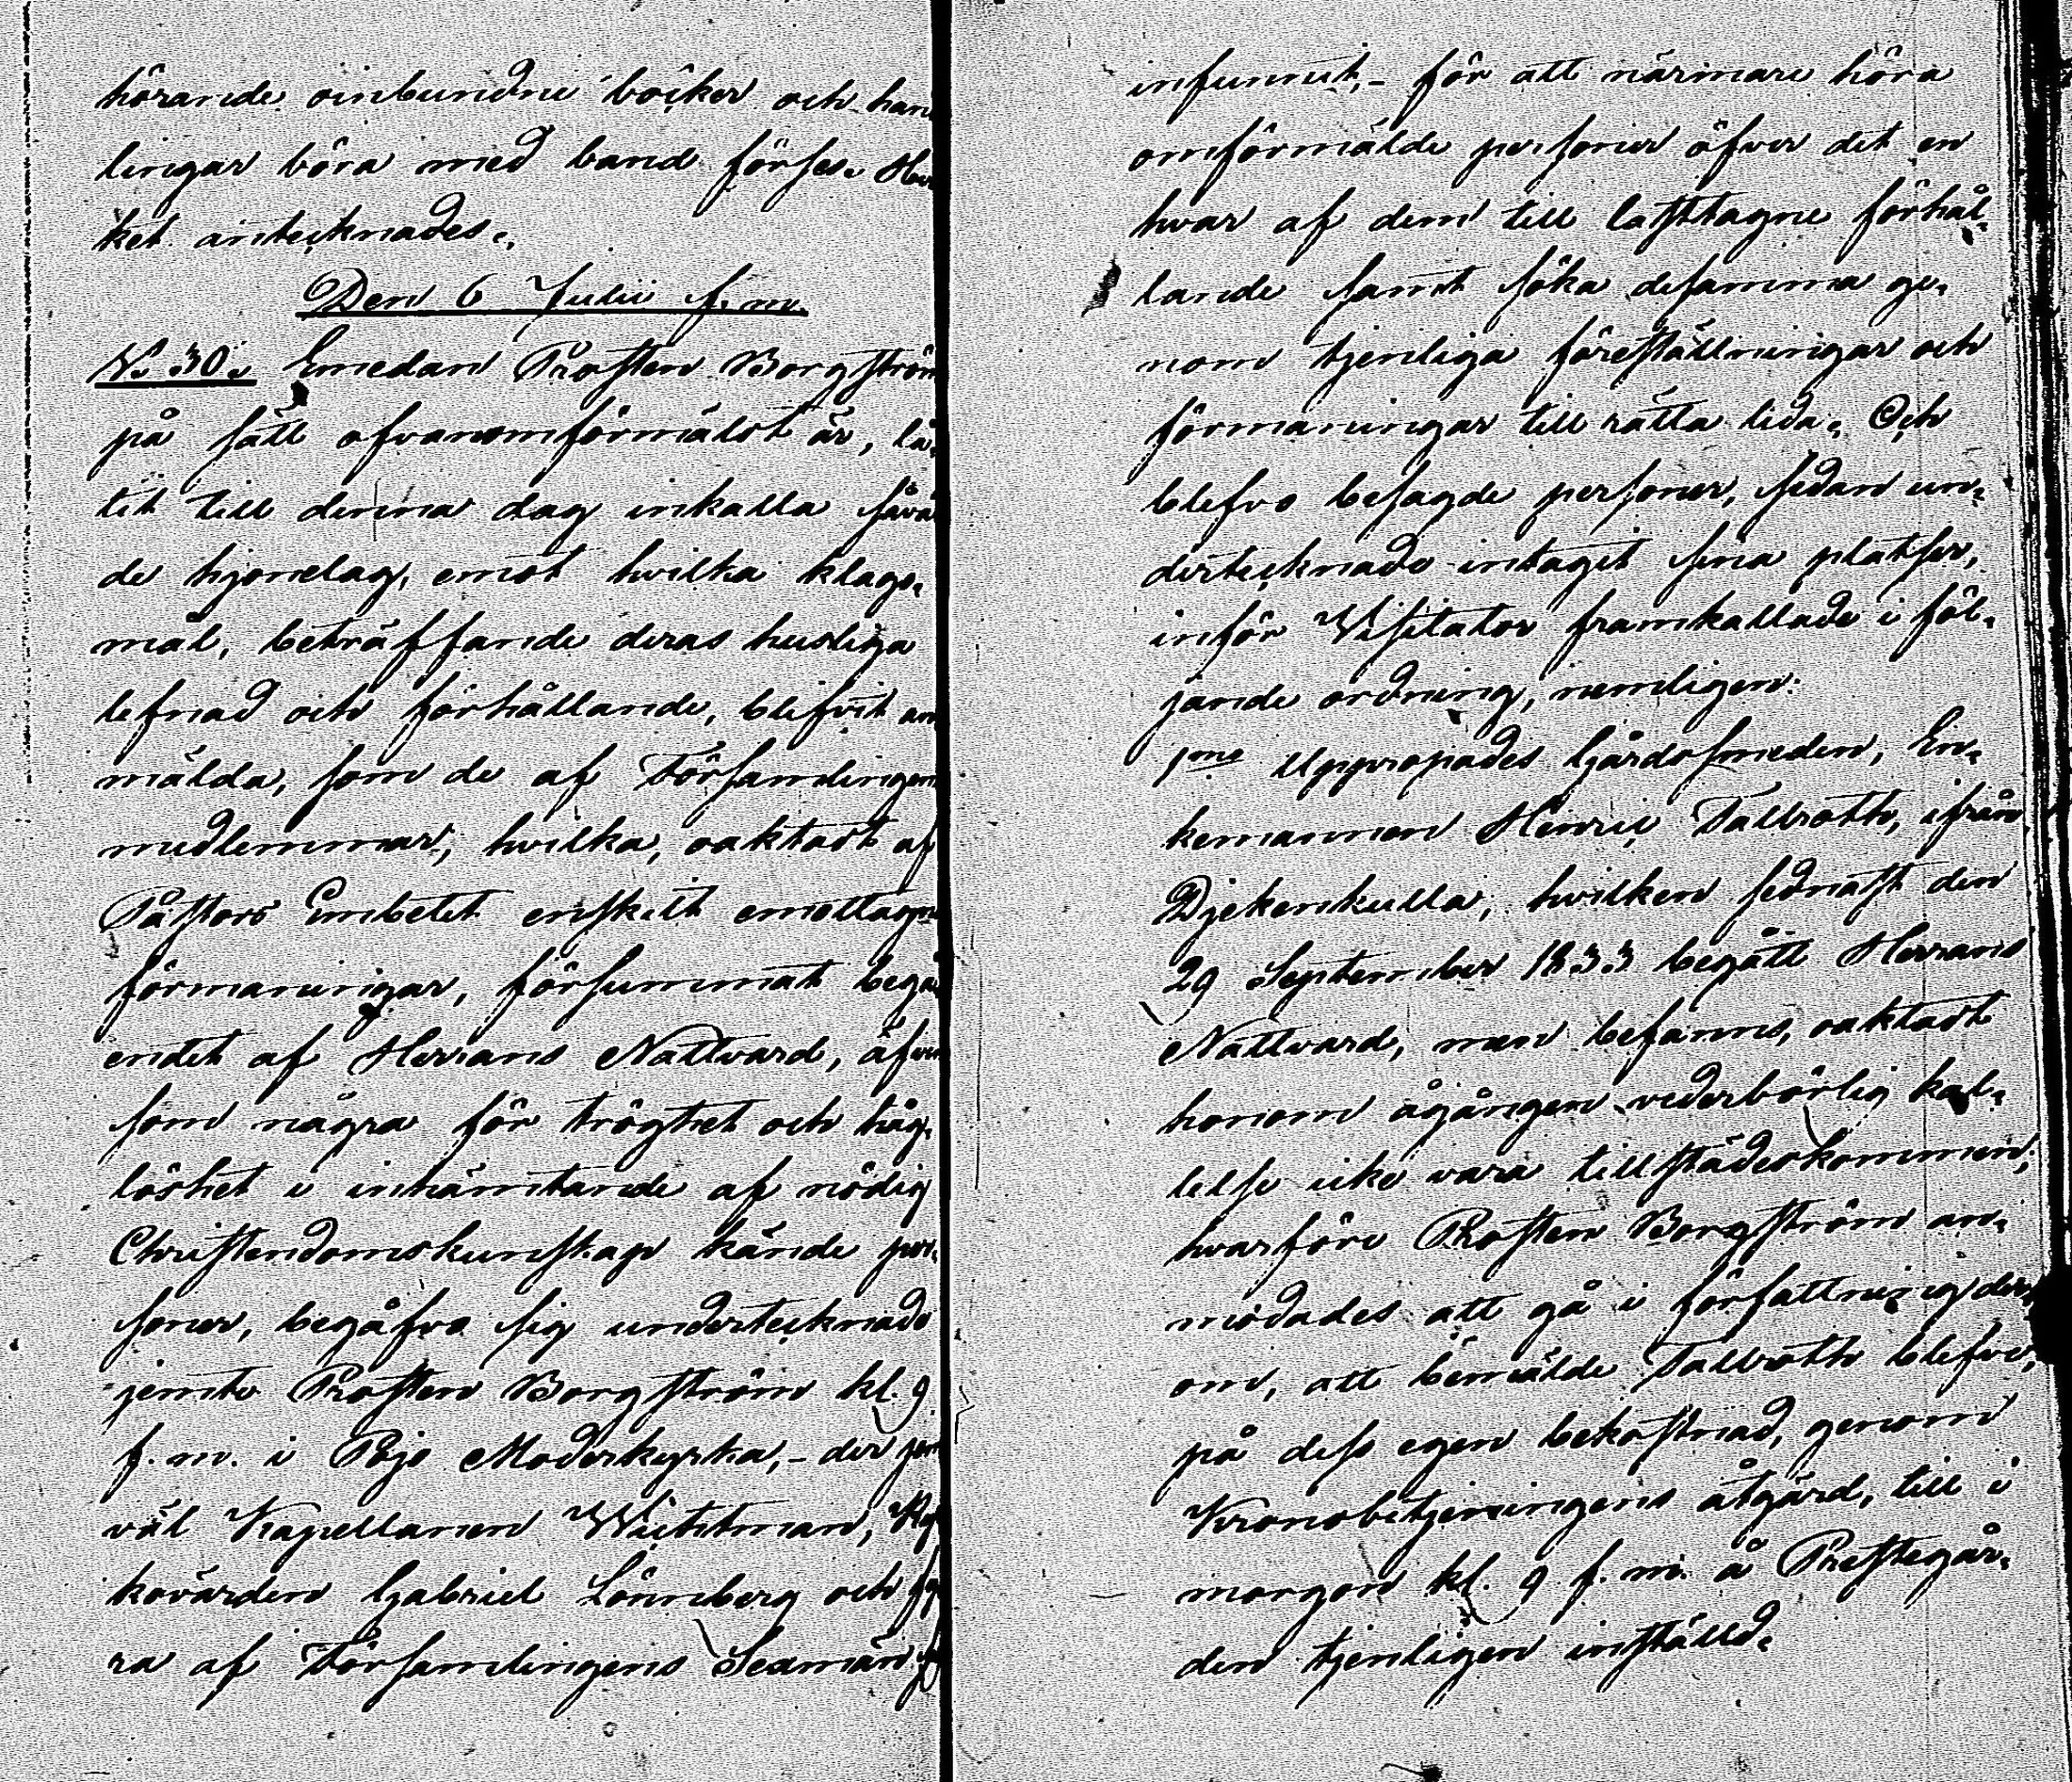 hörande oinbundne böcker och han
lingar böra med band förses. Hvil
ket antecknades.
Den 6 Julii f. m.
N. 30. Emedan Prosten Borgström
på sätt ofvanomförmäldt är, lå-
tit till denna dag inkalla såväl
de hjonelag, emot hvilka klago-
mål, beträffande deras husliga
lefnad och förhållande, blifvit an
mälda, som de af Församlingens
medlemmar, hvilka, oaktadt af
Pastors Embetet enskilt emottagne
förmaningar, försummat begå
endet af Herrans Nattvard, äfven
som några för tröghet och håg-
löshet i inhämtande af nödig
Christendomskunskap kände per-
soner, begåfvo sig undertecknade
jemte Prosten Borgström kl. 9
f. m. i Pojo Moderkyrka, - der jem
väl Kapellanen Wichtman, Kyr
kovärden Gabriel Lönnberg och fy
ra af Församlingens Sexmän
infunnit, - för att närmare höra
omförmälde personer öfver det en
hvar af dem till lasttagne förhål-
lande samt söka desamma ge-
nom tjenliga föreställningar och
förmaningar till rätta leda. Och
blefvo besagde personer, sedan un-
dertecknade intagit sina platser,
inför Visitator framkallade i föl-
jande ordning, nemligen:
1mo Uppropades Gårdssmeden, En-
kemannen Henric Tallroth, ifrån
Djekenkulla, hvilken sednast den
29 September 1833 begått Herrans
Nattvard, men befanns, oaktadt
honom ågången vederbörlig kal-
lelse icke vara tillstädeskommen;
hvarföre Prosten Borgström an-
modades att gå i författning der-
om, att bemälde Tallroth blefve,
på dess egen bekostnad, genom
Kronobetjeningens åtgärd, till i
morgon kl. 9 f. m. å Prestegår-
den tjenligen inställd.